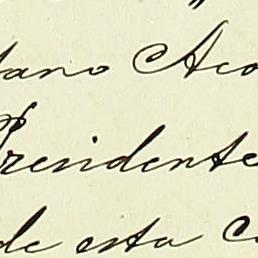 tano Aco
Presidente
de esta c